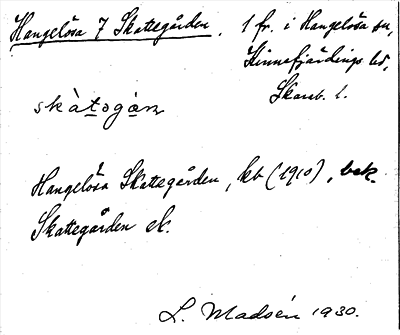 Hangelösa 7 Skattegården. 1 fr. i Hangelösa sn,
Kinnefjärdings hd,
Skarab. l.
skàtogàn
Hangelösa Skattegården, kb (1910), bek.
Skattegården ek.
L. Madsén 1930.